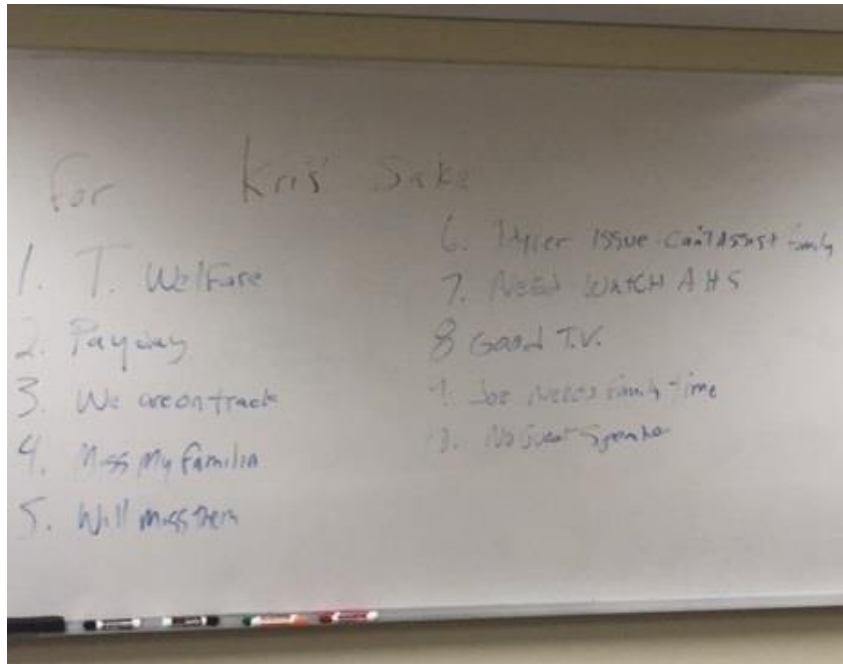 For Kris' Sake
1. T. Welfare
2. Payday
3. We are on track
4. Miss My Familia
5. Will miss them
6. Issue can't Assist family
7. Need WATCH AHS
8 Good T.V.
9. Joe Needs family time
10. No Guest Speaker